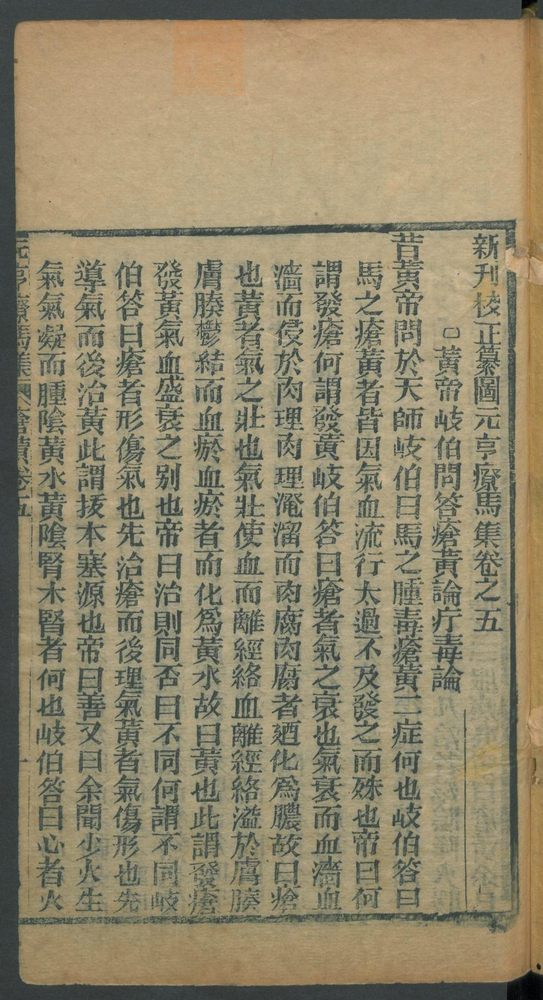 新刊校正纂圖元亨療馬集卷之五
○黃帝岐伯問答瘡黃論疔毒論
昔黃帝問於天師岐伯曰馬之腫毒瘡黃二症何也岐伯答曰
馬之瘡黃者皆因氣血流行太過不及發之而殊也帝曰何
謂發瘡何謂發黃岐伯答曰瘡者氣之衰也氣衰而血濇血
濇而侵於肉理肉理淹溜而肉腐肉腐者廼化爲膿故曰瘡
也黃者氣之壯也氣壯使血而離經絡血離經絡溢於膚腠
膚腠鬱結而血瘀血瘀者而化爲黃水故曰黃也此謂發瘡
發黃氣血盛衰之別也帝曰治則同否曰不同何謂不同岐
伯答曰瘡者形傷氣也先治瘡而後理氣黃者氣傷形也先
導氣而後治黃此謂拔本塞源也帝曰善又曰余聞少火生
氣氣凝而腫陰黃水黃陰腎木腎者何也岐伯答曰心者火
元亨療馬集 瘡黃卷五 一